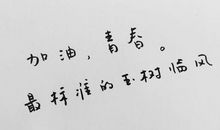 加油，青春。
最标准的玉树临风